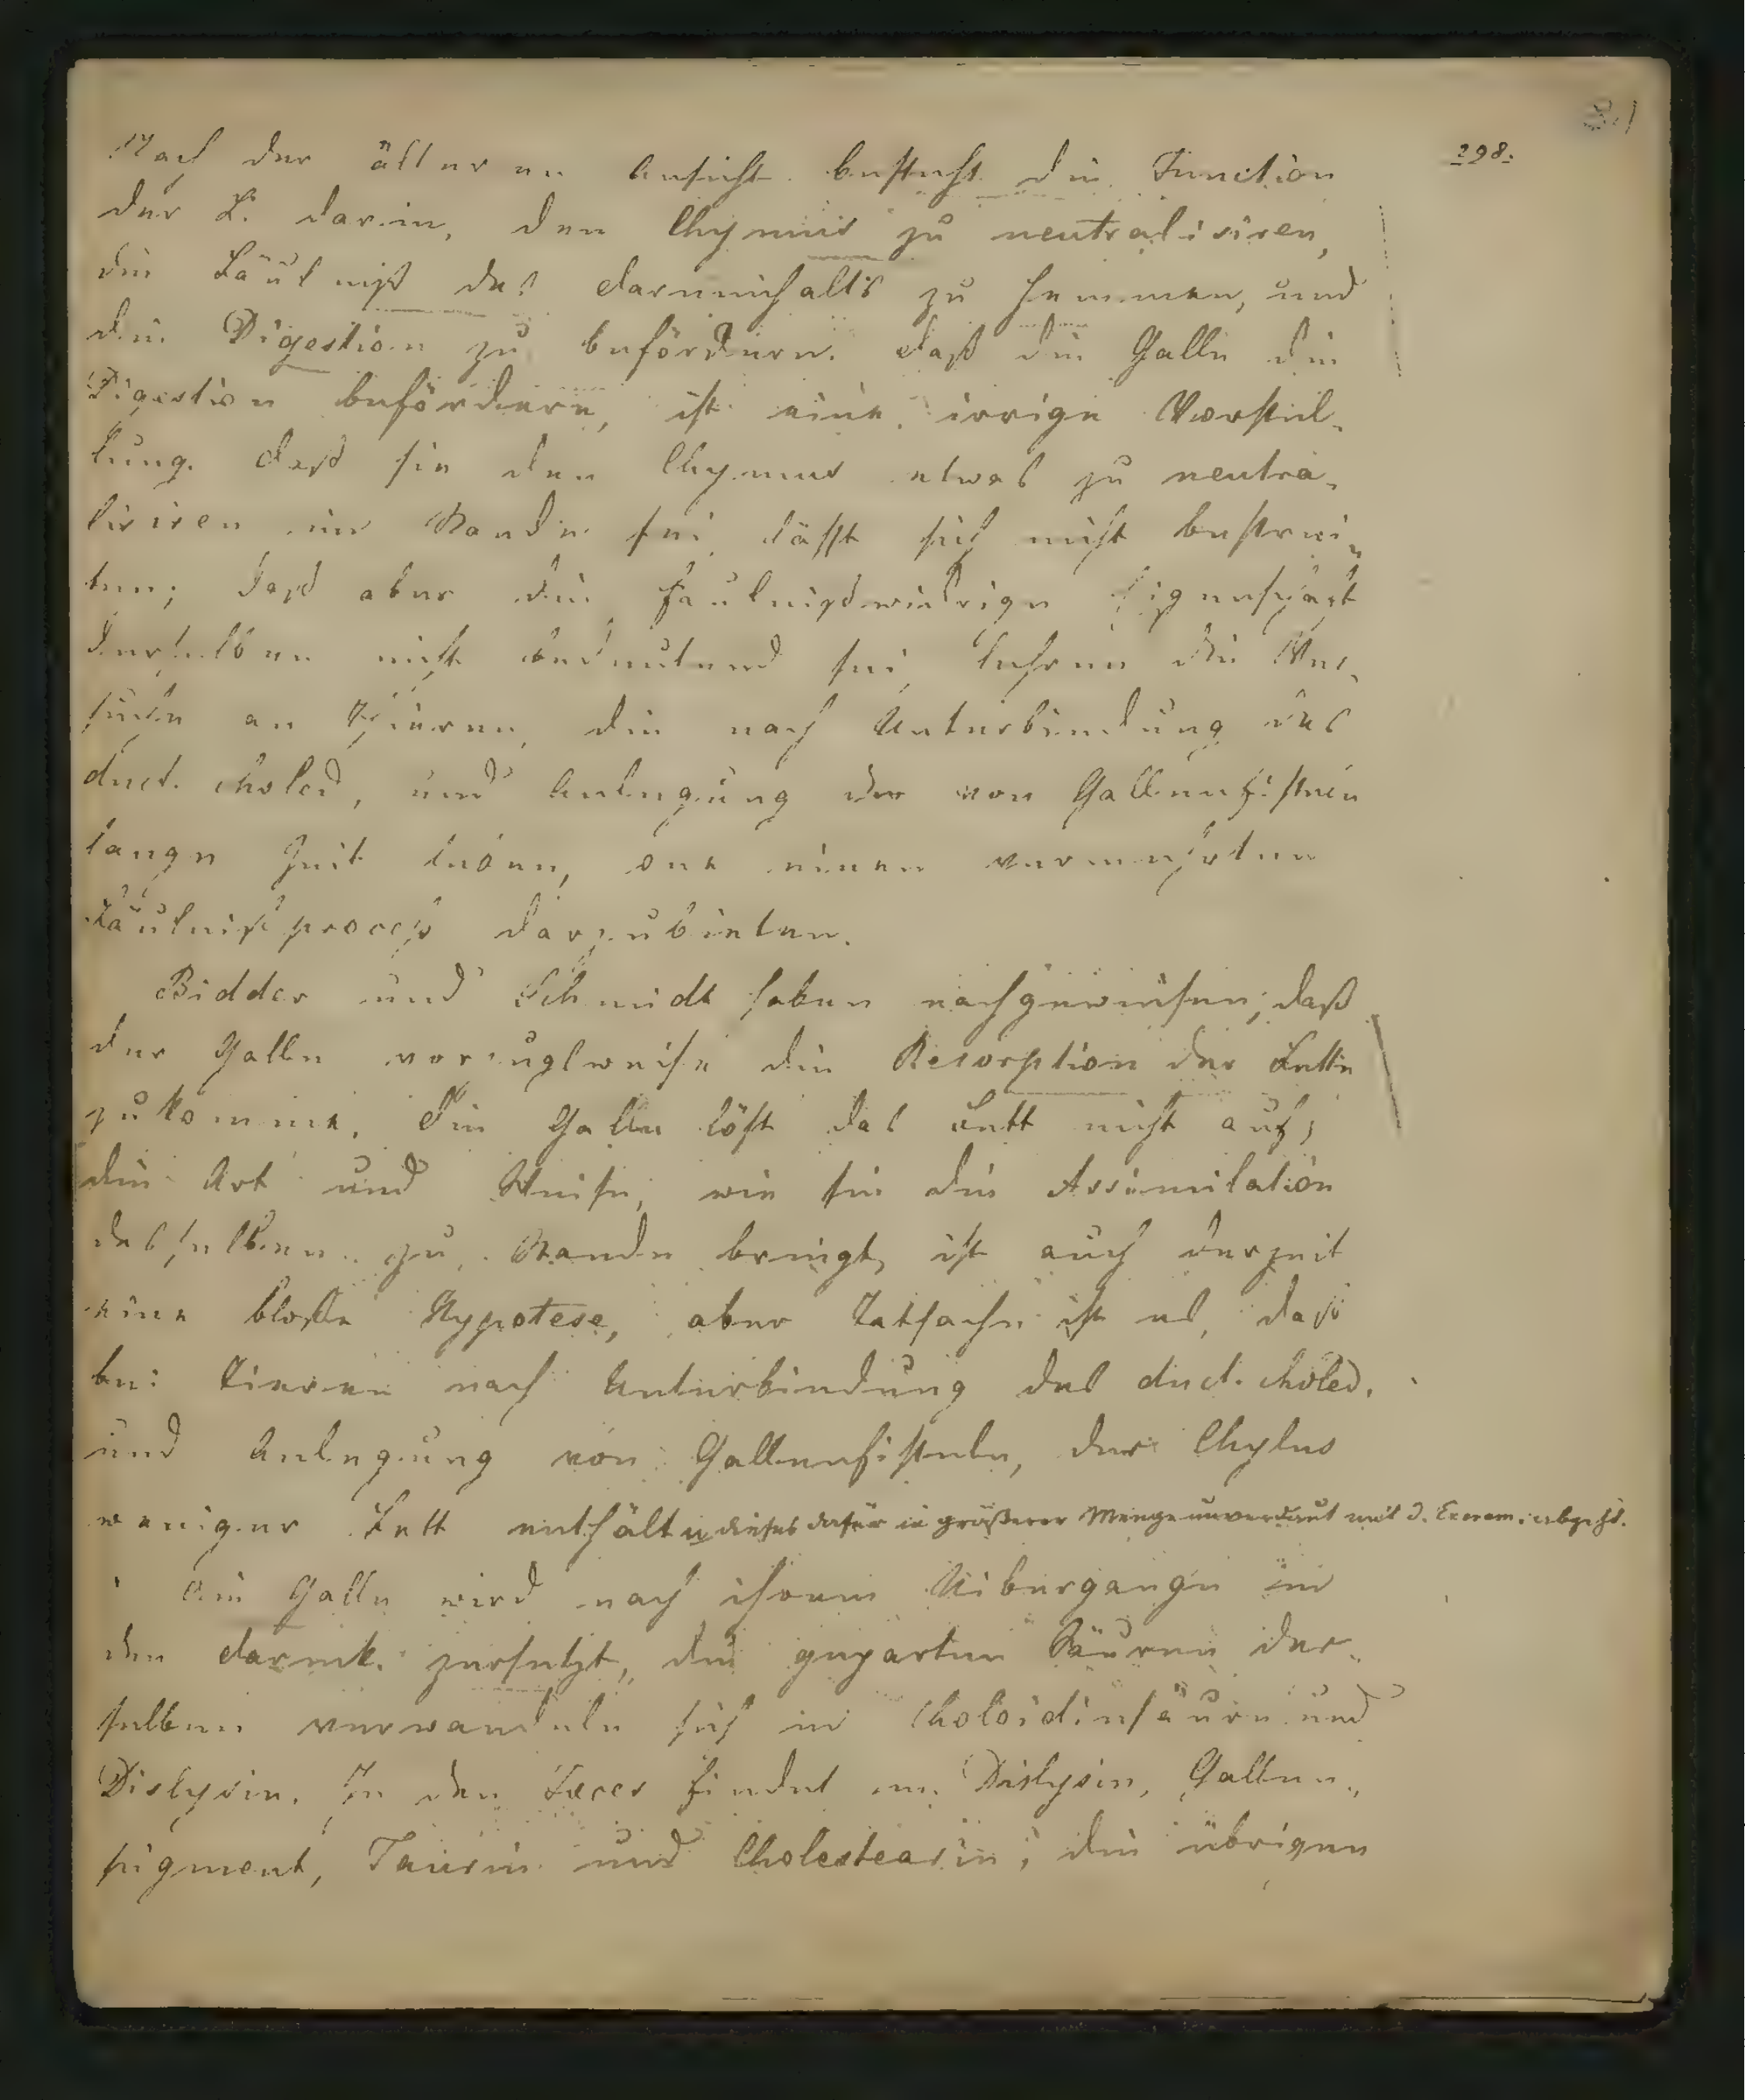 298.
Nach der älteren Ansicht besteht die Function
der L. darin, den Chymus zu neutralisiren,
die Fäulniß des Darminhalts zu hemmen, und
die Digestion zu befördern. Daß die Galle die
Digestion befördere, ist eine irrige Vorstel-
lung. Daß sie den Chymus etwas zu neutra-
lisiren im Stande sei, läßt sich nicht bestrei-
ten; daß aber die fäulnißwidrige Eigenschaft
derselben nicht bedeutend sei, lehren die Ver-
suche an Thieren, die nach Unterbindung des
duct. choled. und Anlegung der von Gallenfisteln
lange Zeit leben, one einen vermehrten
Fäulnißproceß darzubieten.
Bidder und Schmidt haben nachgewiesen, daß
der Galle vorzugsweise die Resorption der Fette
zukomme. Die Galle löst das Fett nicht auf;
die Art und Weise, wie sie die Assimilation
desselben zu Stande bringt, ist auch derzeit
eine bloße Hypotese, aber Tatsache ist es, daß
bei Tieren nach Unterbindung des duct. choled.
und Anlegung von Gallenfisteln, der Chylus
weniger Fett enthält u dieses dafür in größerer Menge unverdaut mit d. Exrem. abgeht.
Die Galle wird nach ihrem Uibergange in
den Darmk. zersetzt, die gepaarten Säuren der-
selben verwandeln sich in Choloidinsäure und
Dislysin. In den Fæces findet m. Dislysin, Gallen-
pigment, Taurin und Cholestearin; die übrigen